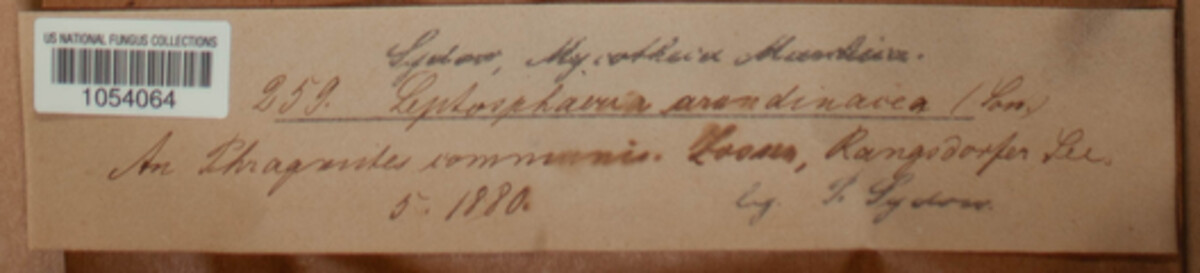 US NATIONAL FUNGUS COLLECTIONS
1054064
Sydow, Mycotheca Marchica.
259. Leptosphaeria arundinacea (Sow.)
An Phragmites communis. Zossen, Rangsdorfer See.
5. 1880.
leg. P. Sydow.